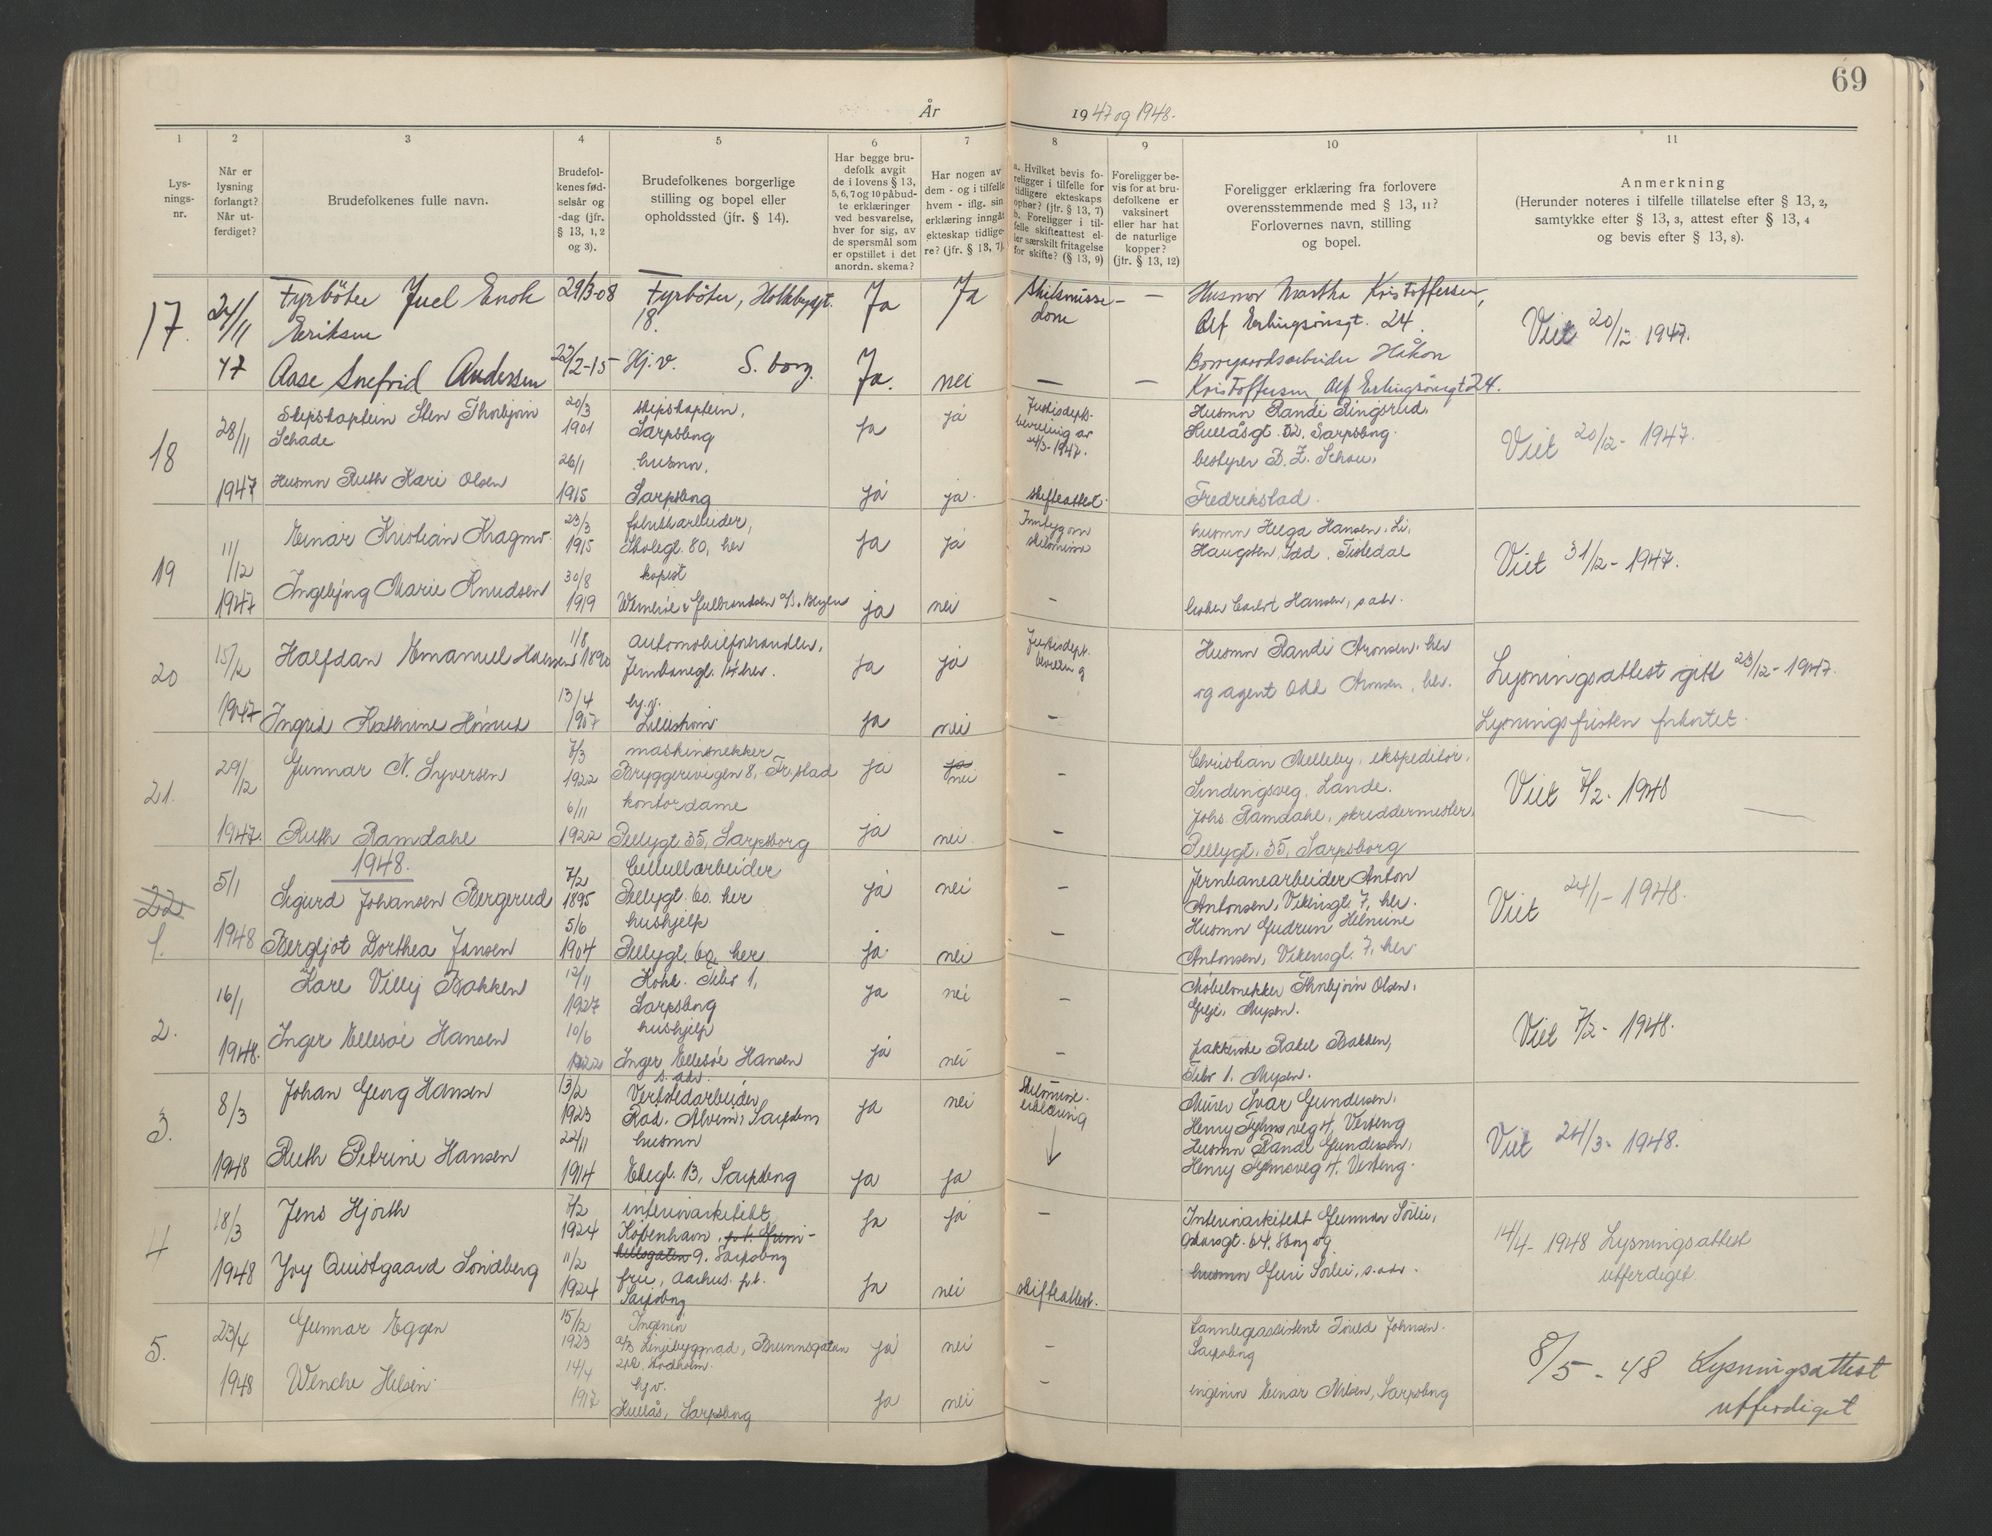 69
År 1947 og 1948.
1 2 3 4 5 6 7 8 9 10 11
Lys-
nings-
nr.
Når er
lysning
forlangt?
Når ut-
ferdiget?
Brudefolkenes fulle navn.
Brudefol-
kenes fød-
selsår og
-dag (jfr.
§ 13, 1, 2
og 3).
Brudefolkenes borgerlige
stilling og bopel eller
opholdssted (jfr. § 14).
Har begge bru-
defolk avgit
de i lovens § 13,
5, 6, 7 og 10 påbud-
te erklæringer
ved besvarelse,
hver for sig, av
de spørsmål som
er opstillet i det
anordn. skema?
Har nogen av
dem - og i tilfelle
hvem - iflg. sin
erklæring inngått
ekteskap tidlige-
re? (jfr. § 13, 7).
a. Hvilket bevis fo-
religger i tilfelle for
tidligere ekteskaps
ophør? (jfr. § 13, 7)
b. Foreligger i til-
felle skifteattest el-
ler særskilt fritagelse
for skifte? (§ 13, 9)
Foreligger be-
vis for at bru-
defolkene er
vaksinert
eller har hat
de naturlige
kopper?
(jfr. § 13, 12)
Foreligger erklæring fra forlovere
overensstemmende med § 13, 11?
Forlovernes navn, stilling
og bopel.
Anmerkning
(Herunder noteres i tilfelle tillatelse efter § 13, 2,
samtykke efter § 13, 3, attest efter § 13, 4
og bevis efter § 13, 8).
17. 24/11 Fyrbøter Juel Enok 29/3-08 Fyrbøter, Ja Ja Skilsmisse- — Husmor Martha Kristoffersen,
Eriksen 18. dom Alf Erlingsønsgt. 24. Viet 20/12 1947.
47 Aase Snefrid Andersen 22/2-15 Hj.v. S.borg. Ja. nei — — Borregaardsarbeider Håkon
Kristoffersen Alf Erlingsønsgt 24.
18 28/11 Skipskaptein Sten Thorbjørn 20/3 skipskaptein, ja ja Justisdepts- Husmor Randi Ringsrud,
Schade 1901 Sarpsborg bevilling av Kullåsgt. 52, Sarpsborg. Viet 20/12- 1947.
26/1 husmor, 21/3-1947. bestyrer
1947 Husmor Ruth Kari Olsen 1915 Sarpsborg ja ja. skifteattest. Fredrikstad.
19 11/12 Einar Kristian Kragmo 23/3 fabrikkarbeider, ja ja Helga Hansen,
1915 Skolegt. 80, her skilsmisse Idd, Tistedal Viet 31/12- 1947.
30/8
1947 Ingebjørg Marie Knudsen 1919 ja nei — Hansen, s. adr.
20 15/12 Halfdan Emanuel Hansen 1/8 1890 automobilforhandler, ja ja Justisdept. Husmor Randi Aronsen, her
Jernbanegt. 14 her. bevilling og agent Odd Aronsen, her. Lysningsattest gitt 23/12-1947.
13/4 hj.v.
1947 Ingrid Kathrine 1907 Lillestrøm ja nei — Lysningsfristen forkortet.
21. 29/12 Gunnar N. Syversen 7/3 maskinsnekker ja nei — Christian Melleby, ekspeditør,
1922 Bryggeriveigen 8, Fr.stad Sindingsveg, Lande. Viet 7/2- 1948
6/11 kontordame Johs. Ramdahl, skreddermester,
1947. Ruth Ramdahl 1922 Pellygt 35, Sarpsborg ja nei. — Pellygt. 35, Sarpsborg
1948.
22 5/1 Sigurd Johansen Bergerud 7/2 Cellullarbeider ja nei — Jernbanearbeider Anton
1. 1895 Pellygt. 60. her Antonsen, Vikingt. 7, her. Viet 24/1- 1948.
5/6 hushjelp Husmor Gudrun Helmine
1948 Bergljot Dorthea Jansen 1904 Pellygt. 60, her ja nei — Antonsen, Vikingt. 7, her
2. 16/1 Kåre Villy Bakken 12/11 ja nei — Møbelsnekker Thorbjørn Olsen,
1927 Sarpsborg
10/6 hushjelp Viet 7/2- 1948.
1948. Inger Ellesøe Hansen 1922 Inger Ellesøe Hansen ja nei — Rakel Bakken,
s. adr.
3. 8/3 Johan Georg Hansen 13/2 Verkstedarbeider ja nei Murer Ivar Gundersen,
1923 Rad. Alvim, Sarpsborg erklæring Henry
22/11 husmor ↓ Husmor Randi Gundersen, Viet 24/3- 1948.
1948 Ruth Petrine Hansen 1914 13, Sarpsborg ja ja Henry
4 18/3 Jens Hjorth 7/2 interiørarkitekt ja ja — Interiørarkitekt Gunnar Sørlie,
1924 København, Oskarsgt. 64, Sborg og 14/4- 1948 Lysningsattest
11/2 9. Sarpsborg husmor Guri Sørlie, s. adr. utferdiget
1948 Joy Quistgaard Söndberg 1924 fru, Aarhus. p.t. ja nei skifteattest.
Sarpsborg
5. 23/4 Gunnar Eggen 15/12 Ingeniør ja nei — Tannlegeassistent Johnsen.
1923 A/B Linjebyggnad, Brunnsgatan Sarpsborg 8/5 - 48 Lysningsattest
14/4 Stockholm.
1948 Wenche 1917 hj.v. ja nei — ingeniør Einar Nilsen, Sarpsborg utferdiget
Kullås, Sarpsborg